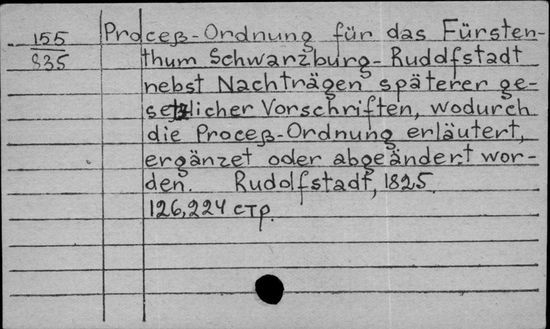 155 Proceß-Ordnung für das Fürsten-
835 thum Schwarzburg-Ruddfstadt
nebst Nachträgen späterer ge-
setzlicher Vorschriften, wodurch
die Proceß-Ordnung erläutert,
ergänzet oder abgeändert wor-
den. Rudolfstadt, 1825.
126,224 стр.